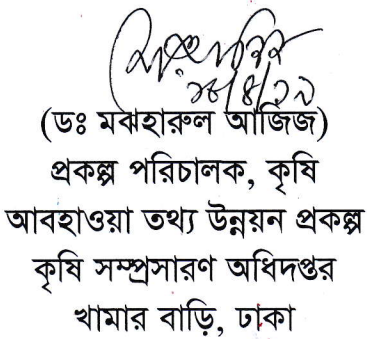 ১৮/৪/১৯
(ডঃ মঝহারুল আজিজ)
প্রকল্প পরিচালক, কৃষি
আবহাওয়া তথ্য উন্নয়ন প্রকল্প
কৃষি সম্প্রসারণ অধিদপ্তর
খামার বাড়ি, ঢাকা